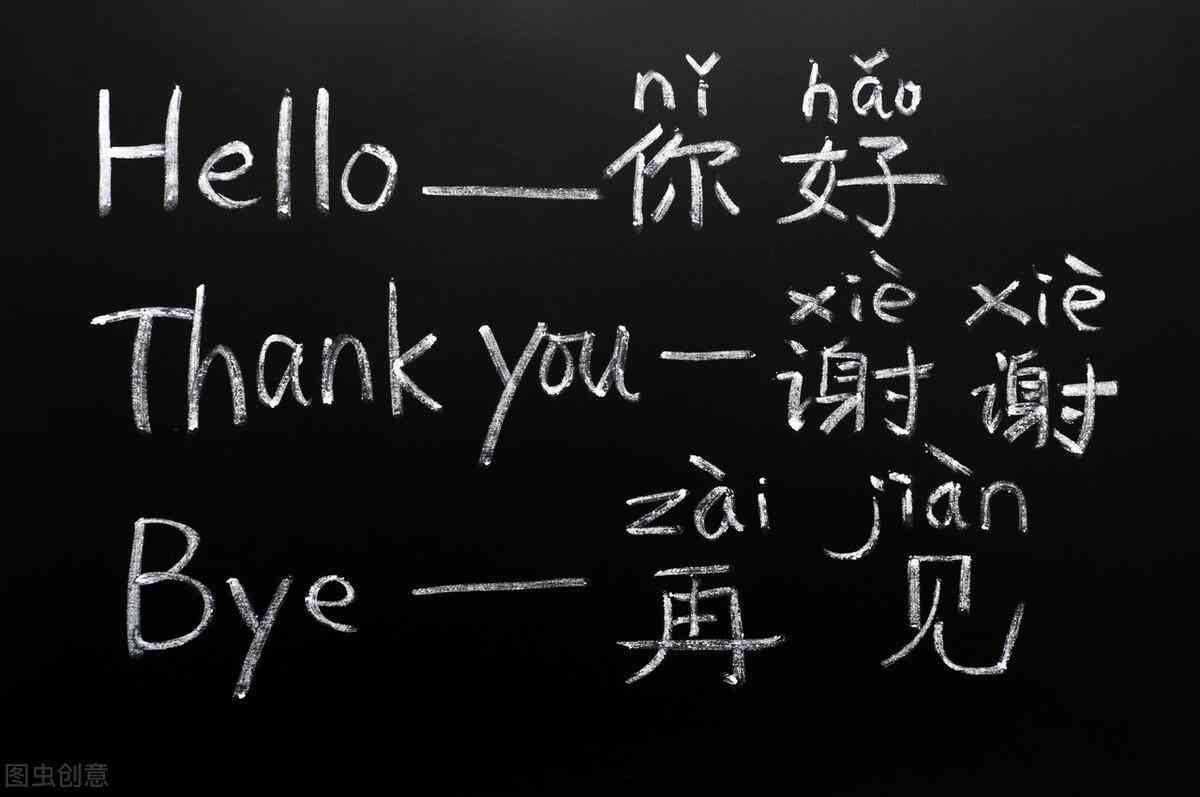 nǐ hǎo
Hello — 你 好
xiè xiè
Thank you — 谢 谢
zài jiàn
Bye — 再 见
图虫创意